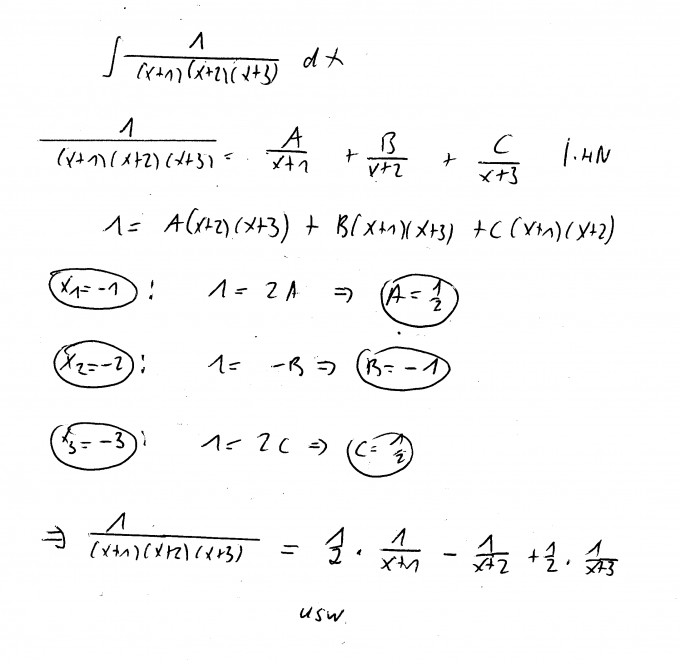 ∫ 1/((x+1)(x+2)(x+3)) dx
1/((x+1)(x+2)(x+3)) = A/(x+1) + B/(x+2) + C/(x+3) |·HN
1 = A(x+2)(x+3) + B(x+1)(x+3) + C(x+1)(x+2)
x₁=-1 : 1 = 2A ⇒ A = 1/2
x₂=-2 : 1 = -B ⇒ B = -1
x₃=-3 : 1 = 2C ⇒ C = 1/2
⇒ 1/((x+1)(x+2)(x+3)) = 1/2 · 1/(x+1) - 1/(x+2) + 1/2 · 1/(x+3)
usw.